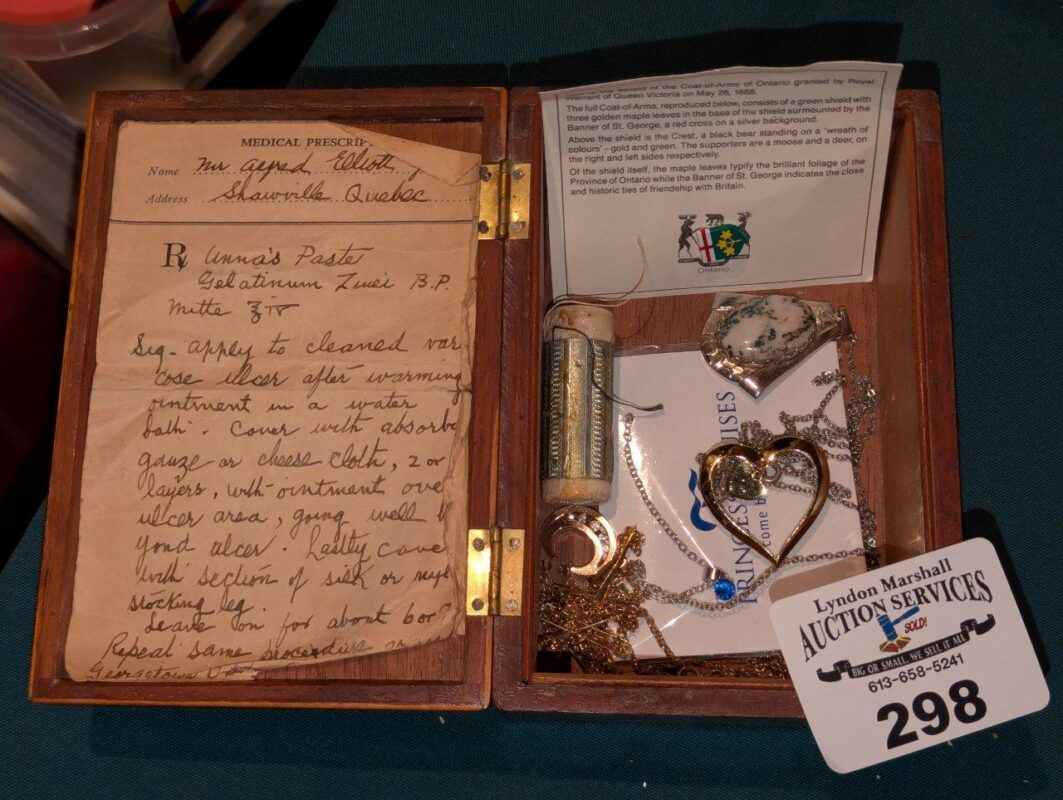 MEDICAL PRESCRIP
Name Mr Alfred Elliott
Address Shawville Quebec
Rx Unna's Paste
Gelatinum Zinci B.P.
Mitte
Sig - apply to cleaned vari
cose ulcer after warming
ointment in a water
bath. Cover with absorbe
gauze or cheese cloth, 2 or
layers, with ointment ove
ulcer area, going well b
yond ulcer. Lastly cove
with section of silk or
stocking leg.
Leave on for about 6 or
Repeat same procedure
Georgetown
Coat-of-Arms of Ontario granted by Royal
Warrant of Queen Victoria on May 26, 1868.
The full Coat-of-Arms, reproduced below, consists of a green shield with
three golden maple leaves in the base of the shield surmounted by the
Banner of St. George, a red cross on a silver background.
Above the shield is the Crest, a black bear standing on a 'wreath of
colours' - gold and green. The supporters are a moose and a deer, on
the right and left sides respectively.
Of the shield itself, the maple leaves typify the brilliant foliage of the
Province of Ontario while the Banner of St. George indicates the close
and historic ties of friendship with Britain.
Ontario
PRINCESS UISES
come b
Lyndon Marshall
AUCTION SERVICES
SOLD!
BIG OR SMALL, WE SELL IT ALL
613-658-5241
298